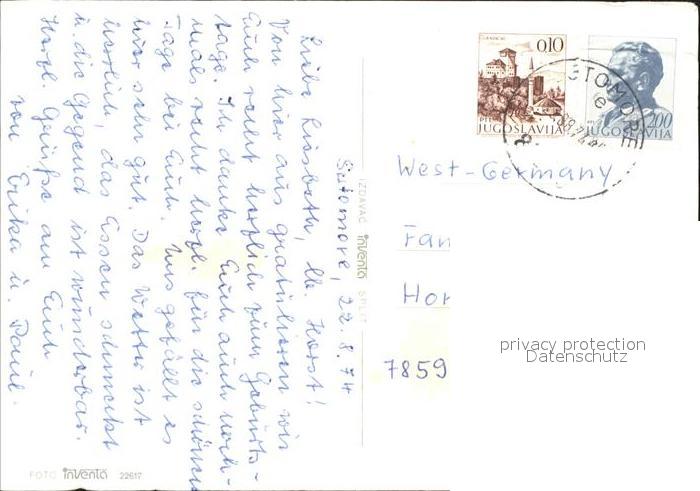 Sutomore, 22.8.74
Liebe Lisbeth, lb. Horst!
Von hier aus gratulieren wir
Euch recht herzlich zum Geburts-
tage. Ich danke Euch auch noch-
mals recht herzl. für die schönen
Tage bei Euch. Uns gefällt es
hier sehr gut. Das Wetter ist
herrlich, das Essen schmeckt
u. die Gegend ist wunderbar.
Herzl. Grüße an Euch
von Erika u. Paul.
IZDAVAČ inventa SPLIT
FOTO inventa 22617
0,10
PTT
JUGOSLAVIJA
2,00
JUGOSLAVIJA
SUTOMORE
West-Germany
Fam
Hor
7859
privacy protection
Datenschutz